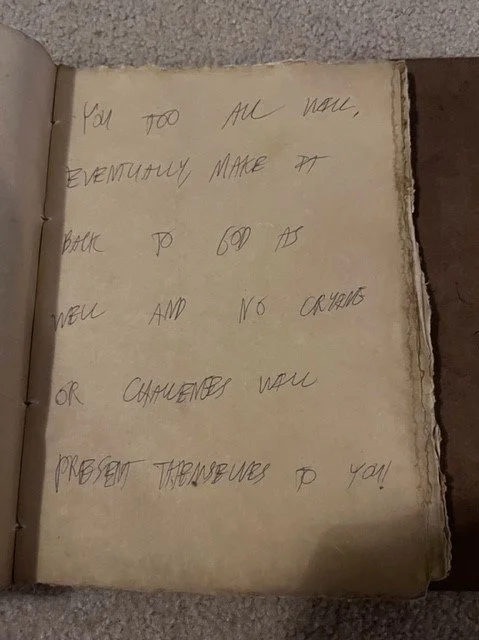 YOU TOO ALL WILL,
EVENTUALLY, MAKE IT
BACK TO GOD AS
WELL AND NO CRYING
OR CHALLENGES WILL
PRESENT THEMSELVES TO YOU!